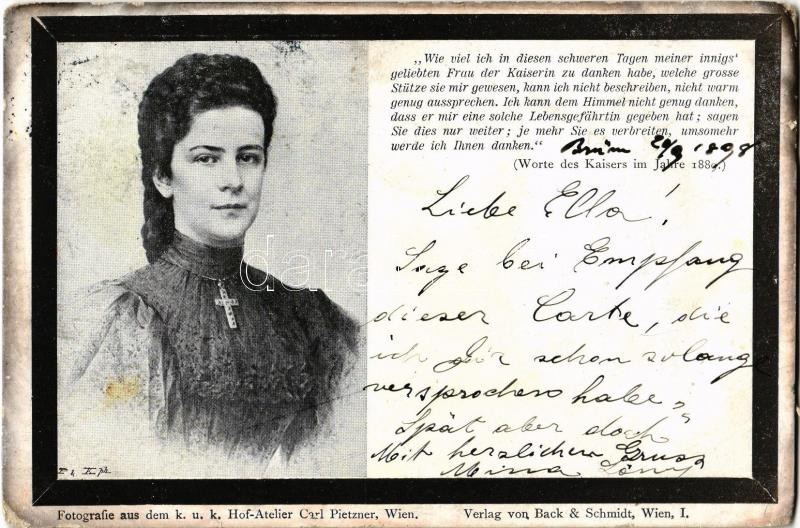 „Wie viel ich in diesen schweren Tagen meiner innigst
geliebten Frau der Kaiserin zu danken habe, welche grosse
Stütze sie mir gewesen, kann ich nicht beschreiben, nicht warm
genug aussprechen. Ich kann dem Himmel nicht genug danken,
dass er mir eine solche Lebensgefährtin gegeben hat; sagen
Sie dies nur weiter; je mehr Sie es verbreiten, umsomehr
werde ich Ihnen danken.“
Brünn 29/9 1898
(Worte des Kaisers im Jahre 1889.)
Liebe Ella!
Sage bei Empfang
dieser Carte, die
ich Dir schon solange
versprochen habe „
Spät aber doch
Mit herzlichen Gruss
Minna
Fotografie aus dem k. u. k. Hof-Atelier Carl Pietzner, Wien.
Verlag von Back & Schmidt, Wien, I.